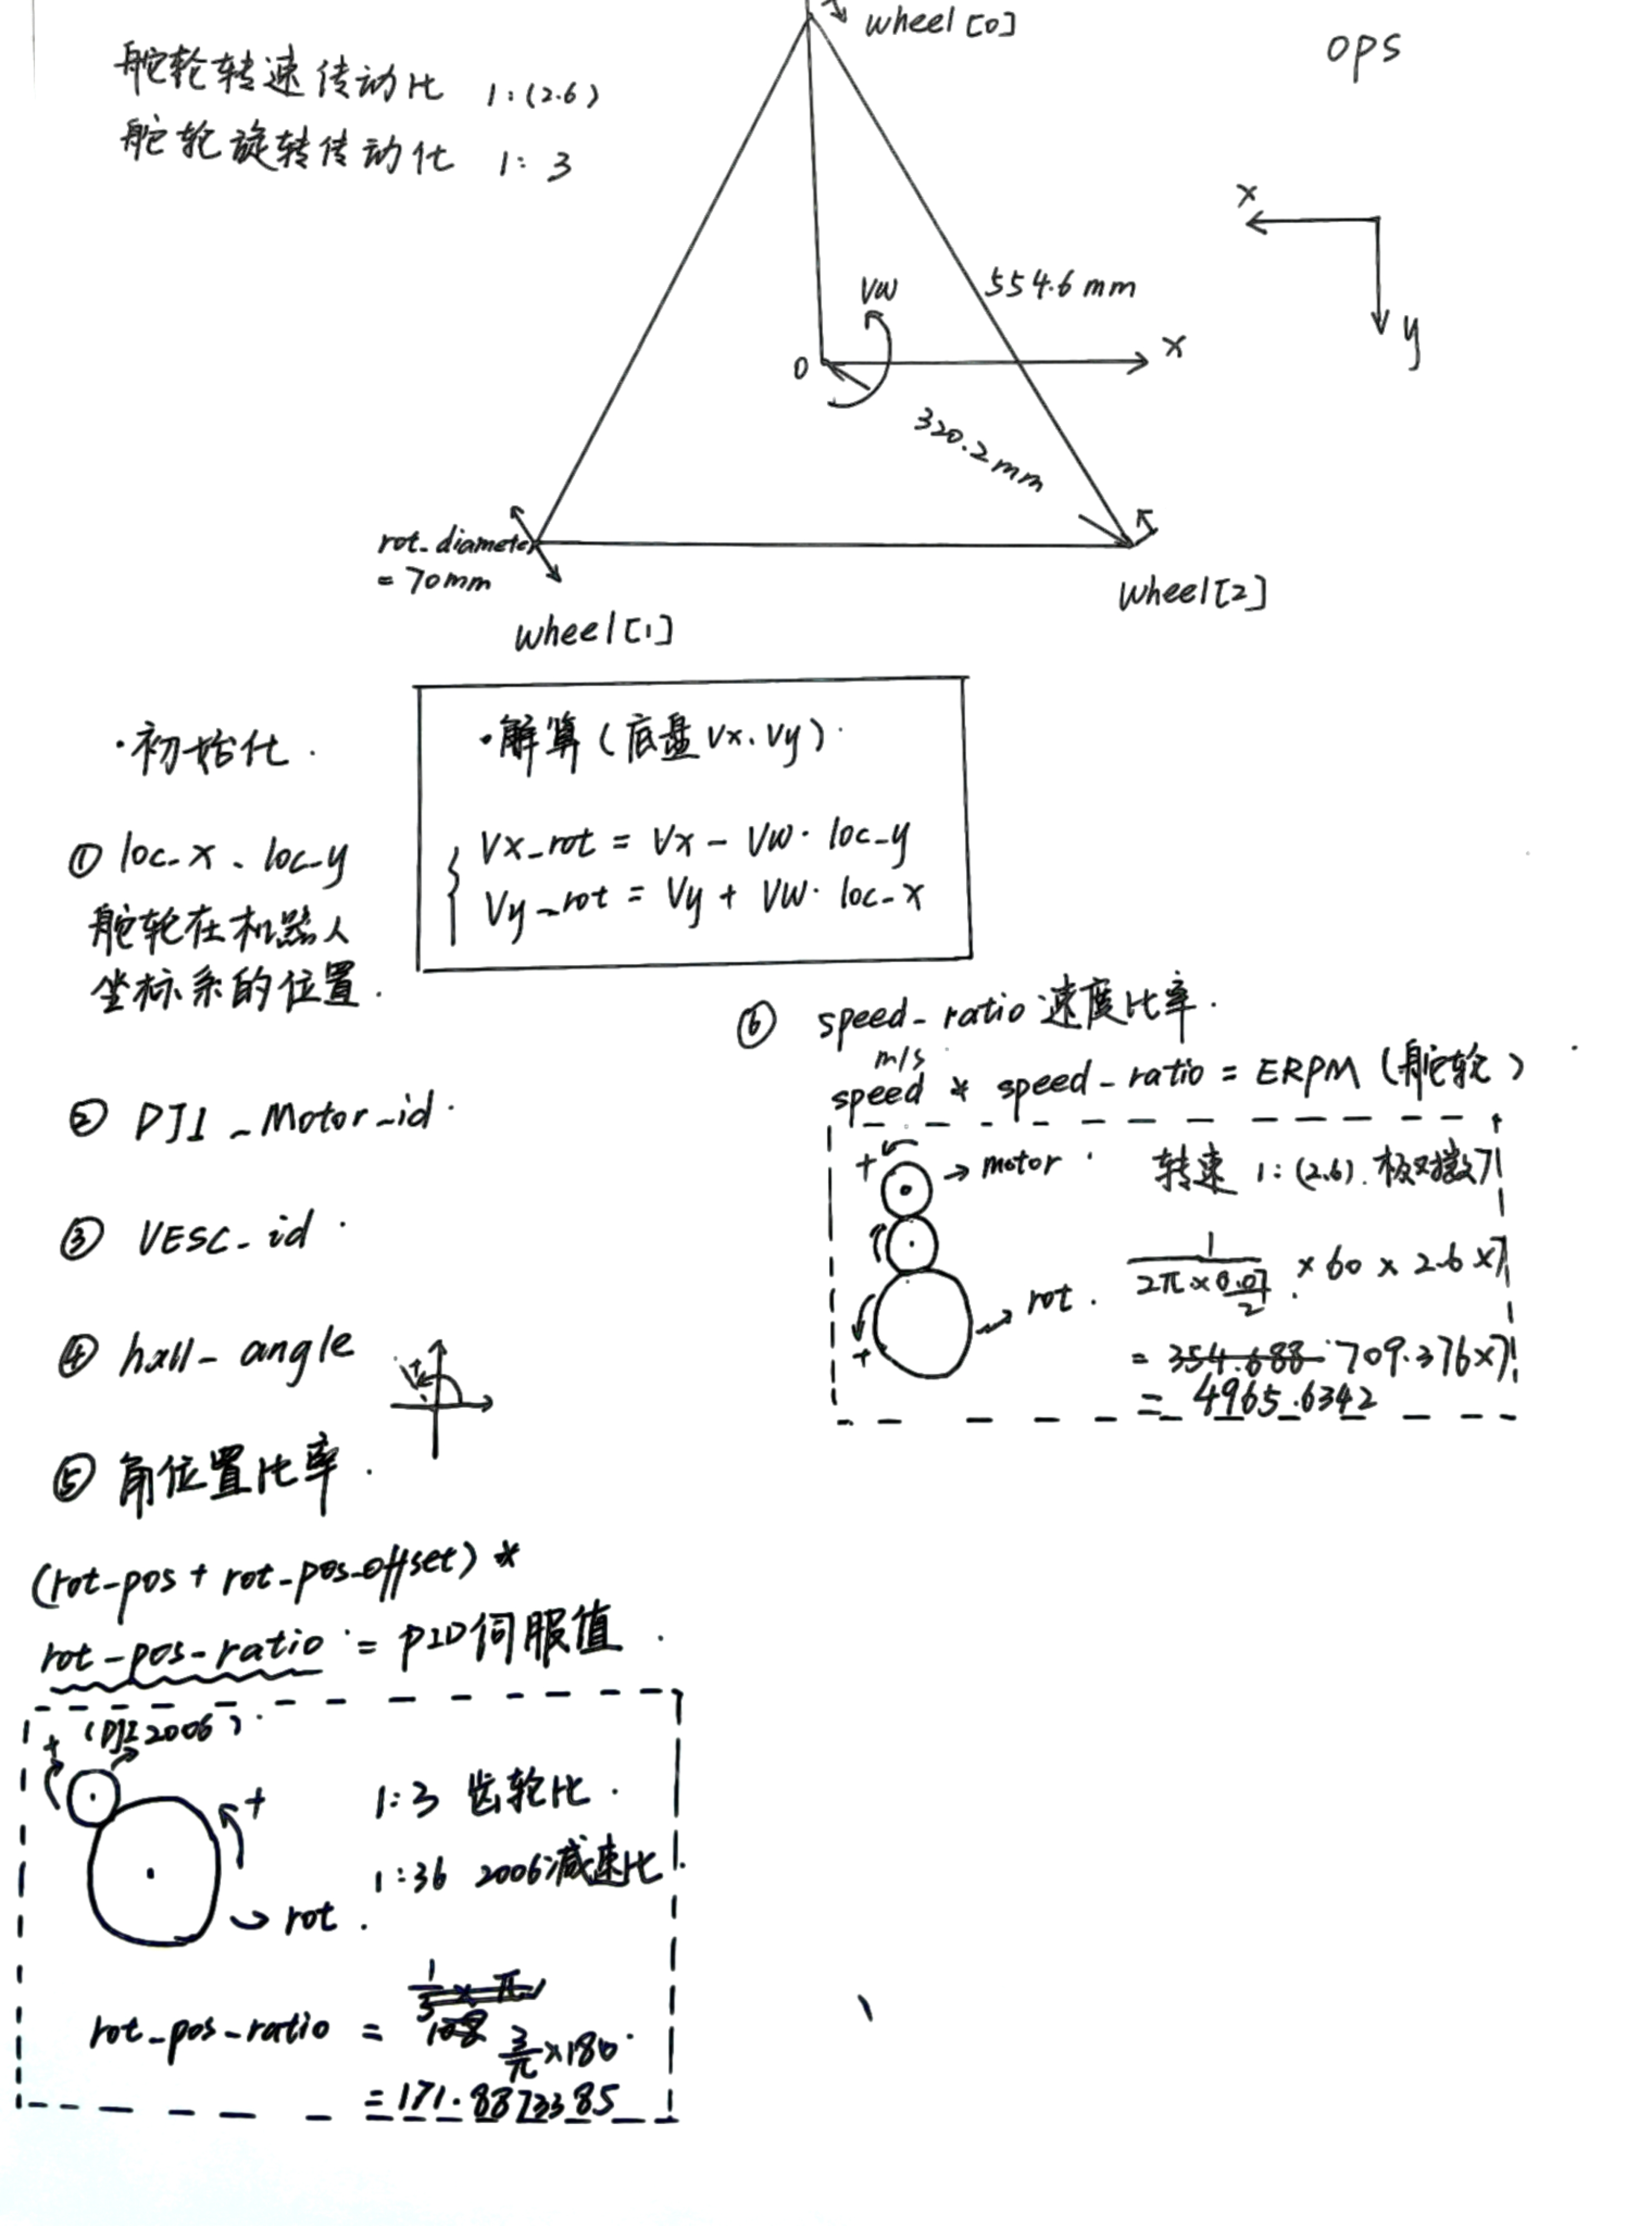 舵轮转速传动比 1:(2.6)
舵轮旋转传动比 1: 3
wheel[0]
ops
x
y
554.6 mm
Vw
0
x
320.2mm
rot_diameter
= 70mm
wheel[1]
wheel[2]
·初始化.
·解算(底盘Vx、Vy)
Vx_rot = Vx - Vw· loc-y
Vy_rot = Vy + Vw· loc-x
① loc-x、loc-y
舵轮在机器人
坐标系的位置.
② DJI_Motor_id.
③ VESC_id.
④ hall_angle
⑤ 角位置比率.
(rot-pos + rot-pos-offset) *
rot-pos-ratio = PID伺服值.
(DJI 2006)
+
+
1:3 齿轮比.
1:36 2006减速比
rot.
rot_pos_ratio = 3/π×180
=171.8873385
⑥ speed_ratio 速度比率.
m/s
speed * speed_ratio = ERPM (舵轮)
+
motor
转速 1:(2.6). 极对数7
1/(2π×0.07/2) ×60×2.6×7
rot.
+
= 354.688 709.376×7
= 4965.6342